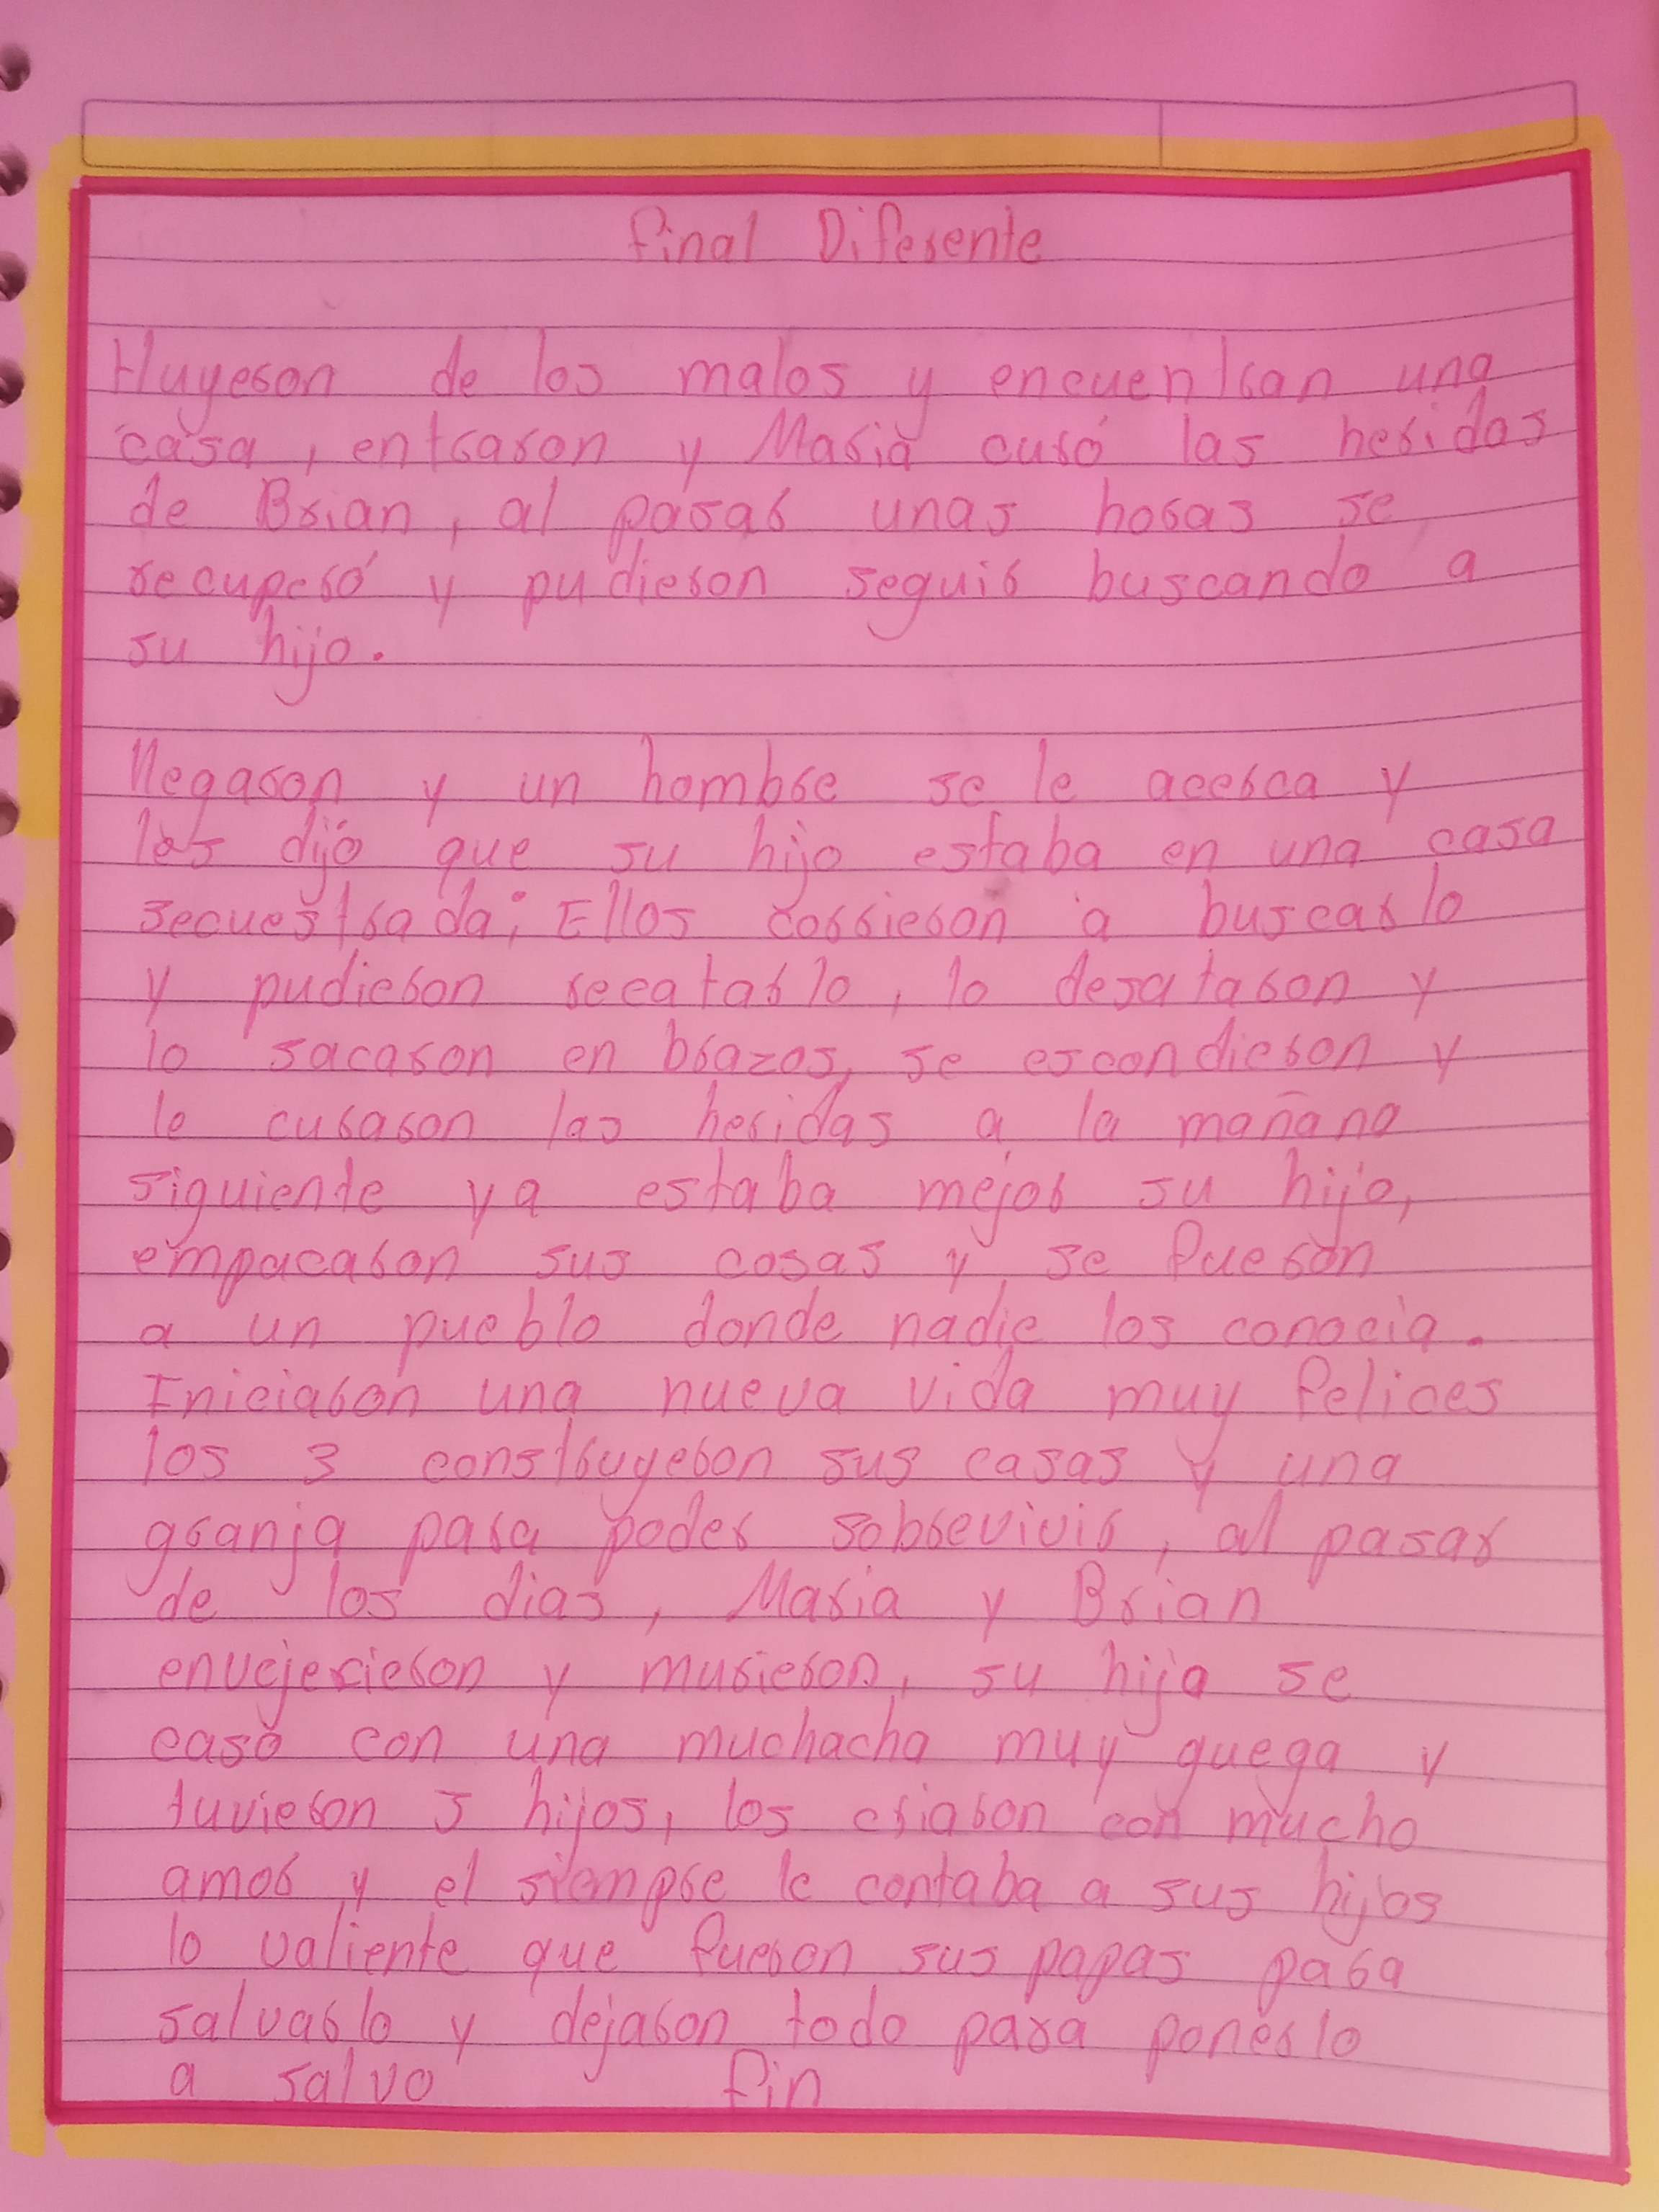 Final Diferente
Huyeron de los malos y encuentran una
casa, entraron y María curó las heridas
de Brian, al pasar unas horas se
recuperó y pudieron seguir buscando a
su hijo.
llegaron y un hombre se le acerca y
les dijo que su hijo estaba en una casa
secuestrada; Ellos corrieron a buscarlo
y pudieron recatarlo, lo desataron y
lo sacaron en brazos, se escondieron y
le curaron las heridas a la mañana
siguiente ya estaba mejor su hijo,
empacaron sus cosas y se fueron
a un pueblo donde nadie los conocia.
Iniciaron una nueva vida muy felices
los 3 construyeron sus casas y una
granja para poder sobrevivir, al pasar
de los dias, Maria y Brian
envejecieron y murieron, su hijo se
casó con una muchacha muy guega y
tuvieron 5 hijos, los criaron con mucho
amor y el siempre le contaba a sus hijos
lo valiente que fueron sus papas para
salvarlo y dejaron todo para ponerlo
a salvo Fin